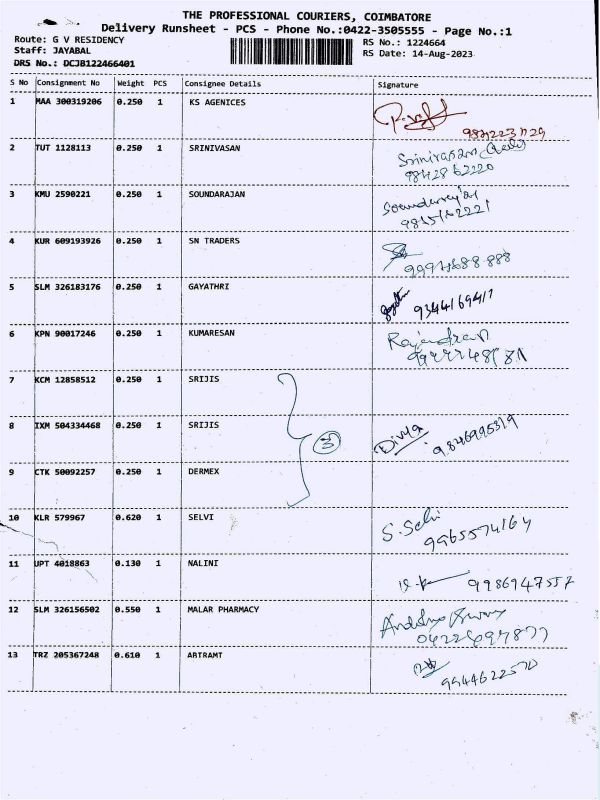 THE PROFESSIONAL COURIERS, COIMBATORE
Delivery Runsheet - PCS - Phone No.:0422-3505555 - Page No.:1
Route: G V RESIDENCY
RS No.: 1224664
Staff: JAYABAL
RS Date: 14-Aug-2023
DRS No.: DCJB122466401
S No Consignment No Weight PCS Consignee Details Signature
1 MAA 300319206 0.250 1 KS AGENICES
2 TUT 1128113 0.250 1 SRINIVASAN Srinivasan
9842862220
3 KMU 2590221 0.250 1 SOUNDARAJAN
4 KUR 609193926 0.250 1 SN TRADERS
5 SLM 326183176 0.250 1 GAYATHRI
6 KPN 90017246 0.250 1 KUMARESAN Rajendran
7 KCM 12858512 0.250 1 SRIJIS
8 IXM 504334468 0.250 1 SRIJIS Divya 9846995319
3
9 CTK 50092257 0.250 1 DERMEX
10 KLR 579967 0.620 1 SELVI S. Selvi
9965574164
11 UPT 4018863 0.130 1 NALINI
9986947557
12 SLM 326156502 0.550 1 MALAR PHARMACY
13 TRZ 205367248 0.610 1 ARTRAMT
9944622570